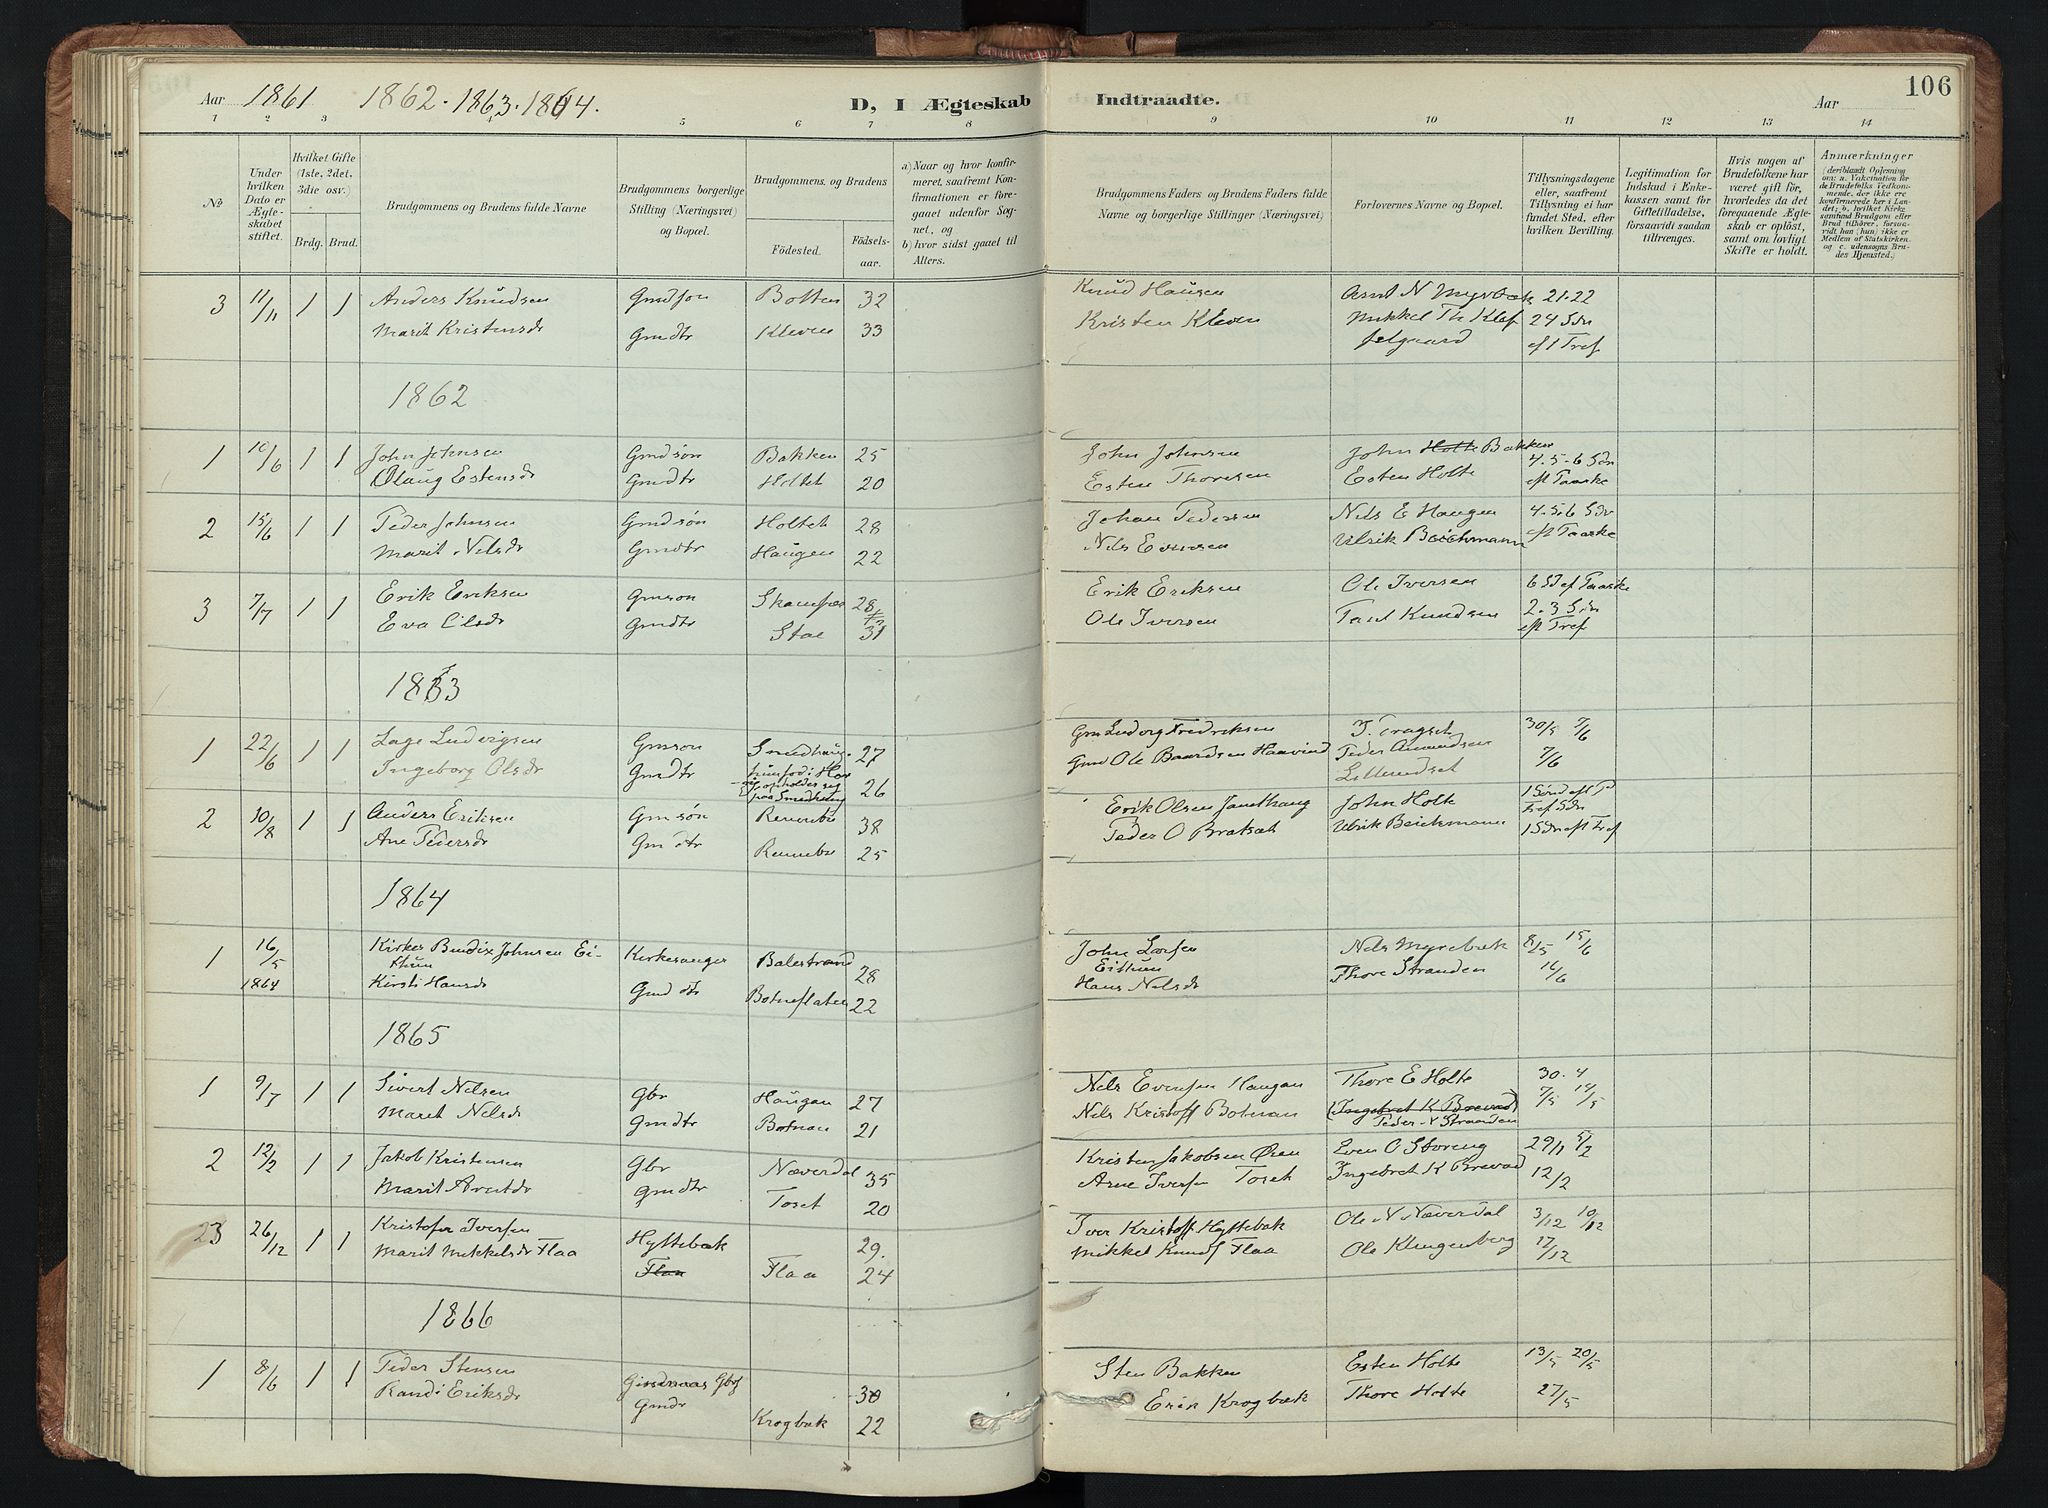 106
Aar 1861 1862. 1863. 1864. D, I Ægteskab Indtraadte. Aar
1 2 3 4 5 6 7 8 9 10 11 12 13 14
No
Under hvilken Dato er Ægteskabet stiftet.
Hvilket Gifte (1ste, 2det, 3die osv.)
Brdg. Brud.
Brudgommens og Brudens fulde Navne
Brudgommens borgerlige Stilling (Næringsvei) og Bopæl.
Brudgommens og Brudens
Födested. Födsels-aar.
a) Naar og hvor konfirmeret, saafremt Konfirmationen er foregaaet udenfor Sognet, og
b) hvor sidst gaaet til Alters.
Brudgommens Faders og Brudens Faders fulde Navne og borgerlige Stillinger (Næringsvei)
Forlovernes Navne og Bopæl.
Tillysningsdagene eller, saafremt Tillysning ei har fundet Sted, efter hvilken Bevilling.
Legitimation for Indskud i Enkekassen samt for Giftetilladelse, forsaavidt saadan tiltrænges.
Hvis nogen af Brudefolkene har været gift för, hvorledes da det foregaaende Ægteskab er oplöst, samt om lovligt Skifte er holdt.
Anmærkninger (deriblandt Oplysning om: a. Vakcination for de Brudefolks Vedkommende, der ikke ere konfirmerede her i Landet; b. hvilket Kirkesamfund Brudgom eller Brud tilhörer, forsaavidt han (hun) ikke er Medlem af Statskirken, og c. udensogns Brudes Hjemsted.)
3 11/11 1 1 Anders Knudsen Gmdson Botten 32 Knud Hansen Arnt N Myrbæk 21.22
Marit Kristensdr Gmdtr Kleven 33 Kristen Kleven Mikkel Th Klef 24 Sdn
jelgaard ef1 Tref
1862
1 10/6 1 1 John Johnsen Gmdsön Bakken 25 John Johnsen John Holte Bakken 4.5-6 Sdn
Olaug Estensdr Gmdtr Holtet 20 Esten Thoresen Esten Holte eft Paaske
2 15/6 1 1 Peder Johnsen Gmdsøn Holtet 28 Johan Pedersen Nils E Haugen 4.5.6 Sdn
Marit Nilsdr Gmdtr Haugen 22 Nils Evensen Ulrik Beichmann eft Paaske
3 7/7 1 1 Erik Eriksen Gmson 28 Erik Eriksen Ole Iversen 6 S ef Paaske
Eva Olsdr Gmdtr Stoe 31 Ole Iversen Paul Knudsen 2.3 Sdn
eft Tref
1863
1 22/6 1 1 Lage Ludvigsen Gmson Smedhaug 27 Gm Ludvig Fredriksen J. Tragset 30/5 7/6
Ingeborg Olsdr Gmdtr 26 Gmd Ole Baardsen Haavind Peder Amundsen 7/6
opholder sig
paa Smedhaug
2 30/8 1 1 Anders Eriksen Gmsön Rennebu 38 Erik Olsen John Holte 1 Sönd eft P
Tref Sdn
Ane Pedersdr Gmdtr Rennebu 25 Peder O Bratset Ulrik Beichmann 1 Sdn eft Tref
1864
1 16/5 Kirkes Bendix Johnsen Ei- Kirkesanger Balestrand 28 John Larsen Nils Myrebæk 8/5 15/6
thun Eithun Thore Stranden 16/6
1864 Kirsti Hansdr Gmd dtr Botneflaten 22 Hans Nilsdr
1865
1 9/7 1 1 Sivert Nilsen Gbr Haugan 27 Nils Evensen Haugan Thore E Holte 30.4
Marit Nilsdr Gmdtr Botnan 21 Nils Kristoff Botnan (Ingebret K Brevad) 7/5 14/5
Peder N Straanden
2 12/2 1 1 Jakob Kristensen Gbr Næverdal 35 Kristen Jakobsen Øien Even O Storeng 29/1 5/2
Marit Arntdr Gmdtr Toset 20 Arne Iversen Toset Ingebret K Brevad 12/2
23 26/12 1 1 Kristofer Iversen Hyttebæk 29. Iver Kristoff Hyttebæk Ole N Næverdal 3/12 10/12
Marit Mikkelsdr Flaa Flaa Flaa 24 Mikkel Knuds Flaa Ole Klingenberg 17/12
1866
1 8/6 1 1 Peder Stensen 30 Sten Bakken Esten Holte 13/5 20/5
Randi Eriksdr Gmdr Krogbæk 22 Erik Krogbæk Thore Holte 27/5